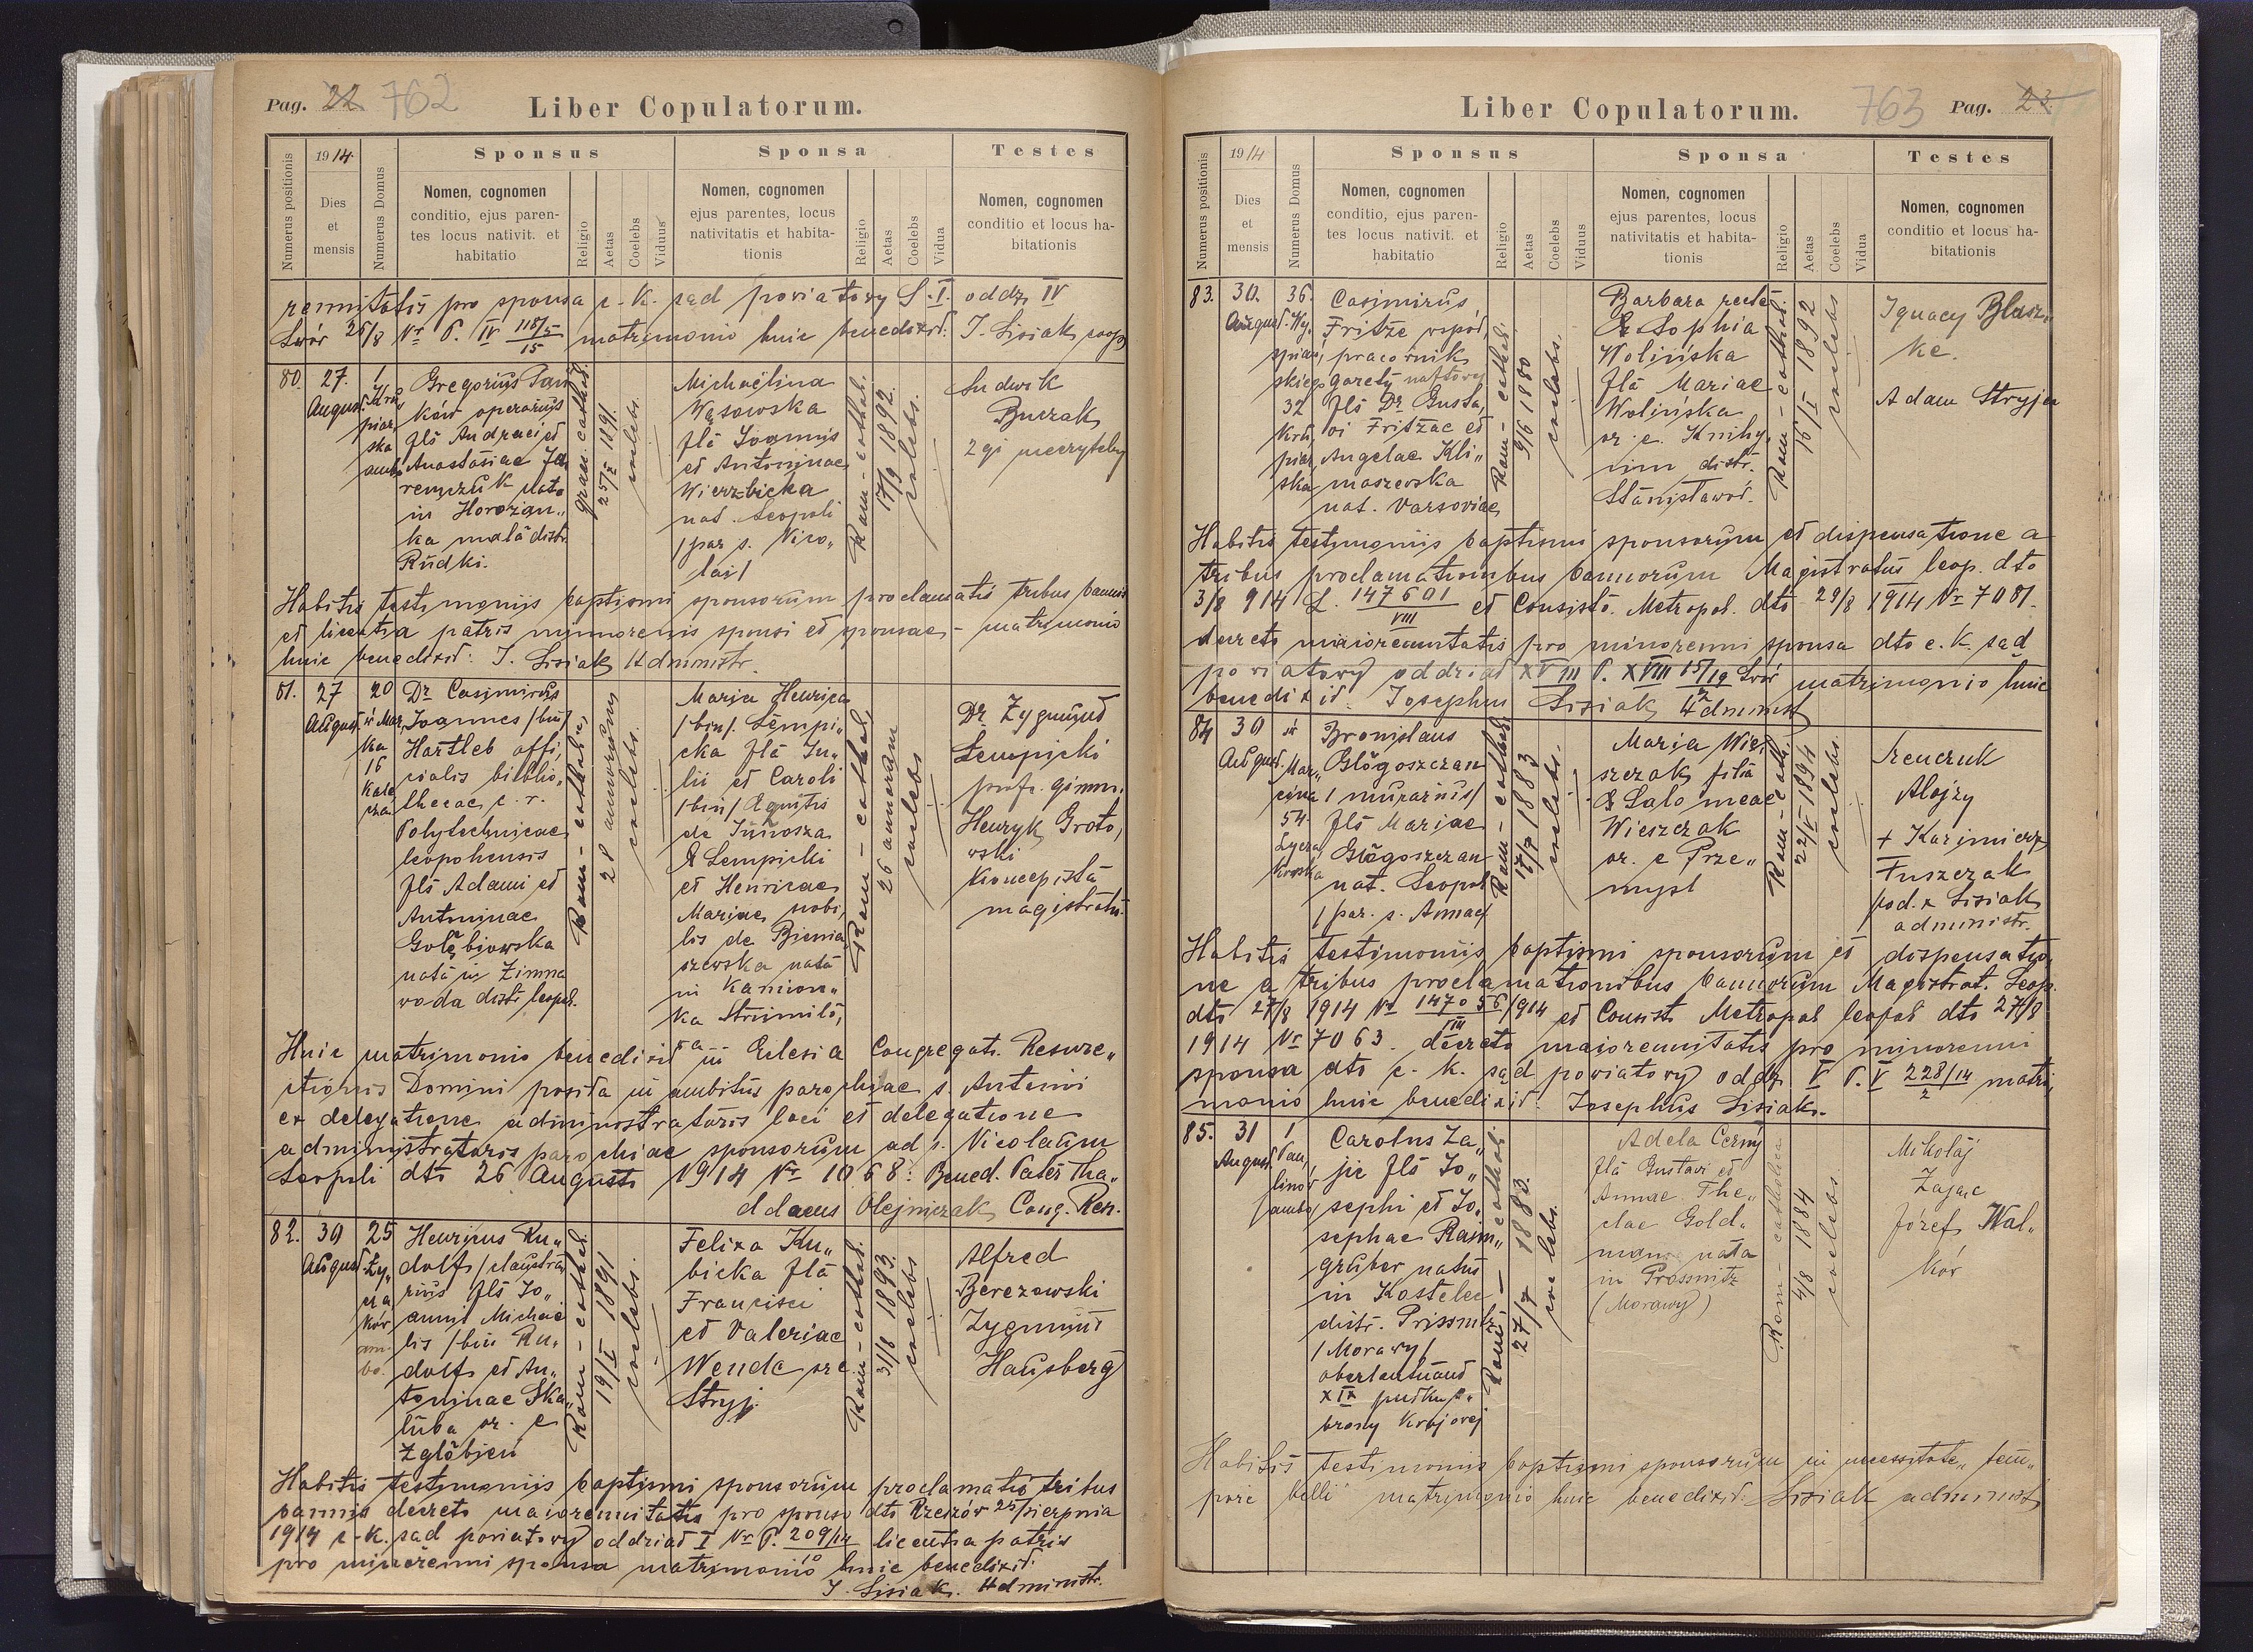 Pag. 22. 762
Liber Copulatorum.
Numerus positionis
1914
Dies
et
mensis
Numerus Domus
Sponsus
Nomen, cognomen
conditio, ejus paren-
tes locus nativit. et
habitatio
Religio
Aetas
Coelebs
Viduus
Sponsa
Nomen, cognomen
ejus parentes, locus
nativitatis et habita-
tionis
Religio
Aetas
Coelebs
Vidua
Testes
Nomen, cognomen
conditio et locus ha-
bitationis
rennitatis pro sponsa c. K. sąd powiatowy S. I. oddz. IV
Lwów 26/8 Nr P. IV 118/5 15 matrimonio huic benedixit: J. Lisiak coop.
80.
27.
August.
1
Kru„
piar„
ska
amb.
Gregorius Pan„
ków operarius
fls Andreei et
Anastasiae
remczuk nato
in Horozan„
ka mala distr.
Rudki.
graec. cathol.
25/I 1891.
coelebs.
Michaëlina
Wąsowska
fla Joannis
et Antoninae
Wierzbicka
nat. Leopoli
/par s. Nico„
lai/
Rom-cathol.
17/9 1892.
coelebs.
Ludwik
Buczak
Habitis testimoniis baptismi sponsorum proclamatis tribus bannis
et licentia patris minorennis sponsi et sponsae - matrimonio
huic benedixit: J. Lisiak Administr.
81.
27
August.
20
Mar„
ka
16
Kale
cza
Dr. Casimirus
Joannes /bin/
Hartleb offi„
cialis biblio„
thecae c. r.
Polytechnicae
leopoliensis
fls Adami et
Antoninae
Gołębiowska
nata in Zimna
woda distr. leopol.
Rom-cathol.
28 annorum
coelebs.
Marja Henrica
/bin/ Łempi„
cka fla Ju„
lii et Caroli
/bin/ Equitis
de Junosza
& Łempicki
et Henricae
Mariae nobi„
lis de Bienia
szewska nata
in Kamion„
ka Strumiło„
wa
Rom-cathol.
26 annorum
coelebs
Dr. Zygmunt
Łempicki
prof. gimn.
Henryk Groto„
wski
Koncepista
magistratu.
Huic matrimonio benedixit in Eclesia Congregati. Resure„
ctionis Domini posita in ambitus parochiae s. Antonii
ex delegatione administratoris loci et delegatione
administratoris parochiae sponsorum ad s. Nicolaum
Leopoli dto 26 Augusti 1914 Nr 1068: Bened. Pater Tha„
ddaeus Olejniczak Cong. Res.
82.
30
August.
25
Ły„
cza
ków
am-
bo.
Henricus Ru„
dolf /claustra
rius fls Jo„
annis Michae
lis /bin Ru„
dolf et An„
toninae Ska„
łuba or. e
Zgłobień
Rom-cathol.
19/I 1891
coelebs.
Felixa Ku„
bicka fla
Francisci
et Valeriae
Wenda or e
Stryj.
Rom-cathol.
31/8 1893.
coelebs
Alfred
Berezowski
Zygmunt
Hausberg
Habitis testimoniis baptismi sponsorum proclamatis tribus
bannis decreto maiorennitatis pro sponso dto Rzeszów 25/sierpnia
1914 c-k. sąd powiatowy oddział I Nr P. 209/14 10 licentia patris
pro minorenni sponsa matrimonio huic benedixit.
J. Lisiak. Administr.
Liber Copulatorum.
763 Pag. 23.
Numerus positionis
1914
Dies
et
mensis
Numerus Domus
Sponsus
Nomen, cognomen
conditio, ejus paren-
tes locus nativit. et
habitatio
Religio
Aetas
Coelebs
Viduus
Sponsa
Nomen, cognomen
ejus parentes, locus
nativitatis et habita-
tionis
Religio
Aetas
Coelebs
Vidua
Testes
Nomen, cognomen
conditio et locus ha-
bitationis
83.
30.
August.
36.
Wy„
spiań„
skiego
32
Kru„
piar„
ska
Casimirus
Fritze współ„
pracownik
gazety naftowej
fls Dr Gusta„
vi Fritzae et
Angelae Kli„
maszewska
nat. Varsoviae
Rom-cathol.
9/6 1880
coelebs.
Barbara recte
& Sophia
Wolińska
fla Mariae
Wolińska
or. e. Knihy„
nin distr.
Stanisławów.
Rom-cathol.
16/I 1892
coelebs
Ignacy Błasz„
ke.
Adam Stryjer
Habitis testimoniis baptismi sponsorum et dispensatione a
tribus proclamationibus bannorum Magistratus leop. dto
3/8 914 L. 147601 VIII et Consisto. Metropol. dto 29/8 1914 Nr 7081.
decreto maiorennitatis pro minorenni sponsa dto c. K. sąd
powiatowy oddział XVIII P. XVIII 15/19 12 Lwów matrimonio huic
benedixit. Josephus Lisiak Administ
84
30
August.
Mar„
cina
54.
Łycza„
kowska
Bronislaus
Głogoszczan
/murarius/
fls Mariae
Głogoszczan
nat. Leopol
/par. s. Annae/
Rom-cathol.
17/9 1883
coelebs.
Maria Wie„
szczak filia
& Salomeae
Wieszczak
or. e Prze„
myśl
Rom-cathol.
22/V 1894
coelebs.
Szewczuk
Alojzy
+ Kazimierz
Tuszczak
pod. x Lisiak
administr.
Habitis testimoniis baptismi sponsorum et dispensatio„
ne a tribus proclamationibus bannorum Magistrat. Leop.
dto 27/8 1914 Nr 147056/914 III et Consist Metropol leopol dto 27/8
1914 Nr 7063. decreto maiorennitatis pro minorenni
sponsa dto c. k. sąd powiatowy oddz. V P. V 228/14 2 matri„
monio huic benedixit: Josephus Lisiak.
85.
31
August.
1
Pau„
linów
/ambo/
Carolus Za„
jic fls Jo„
sephi et Jo„
sephae Raim„
gruber natus
in Kostelec
distr. Prissnitz
/Morawy/
oberleutnand
XIX pułku o„
brony krajowej
Rom-cathol.
27/7 1883.
coelebs.
Adela Černy
fla Gustavi et
Annae The„
clae Gold„
mann nata
in Prossnitz
(Morawy)
Rom-catholica
4/8 1884
coelebs
Mikołaj
Zając
Józef Wal„
ków
Habitis testimoniis baptismi sponsorum in necessitate„ tem„
pore belli matrimonio huic benedixit: Lisiak administ